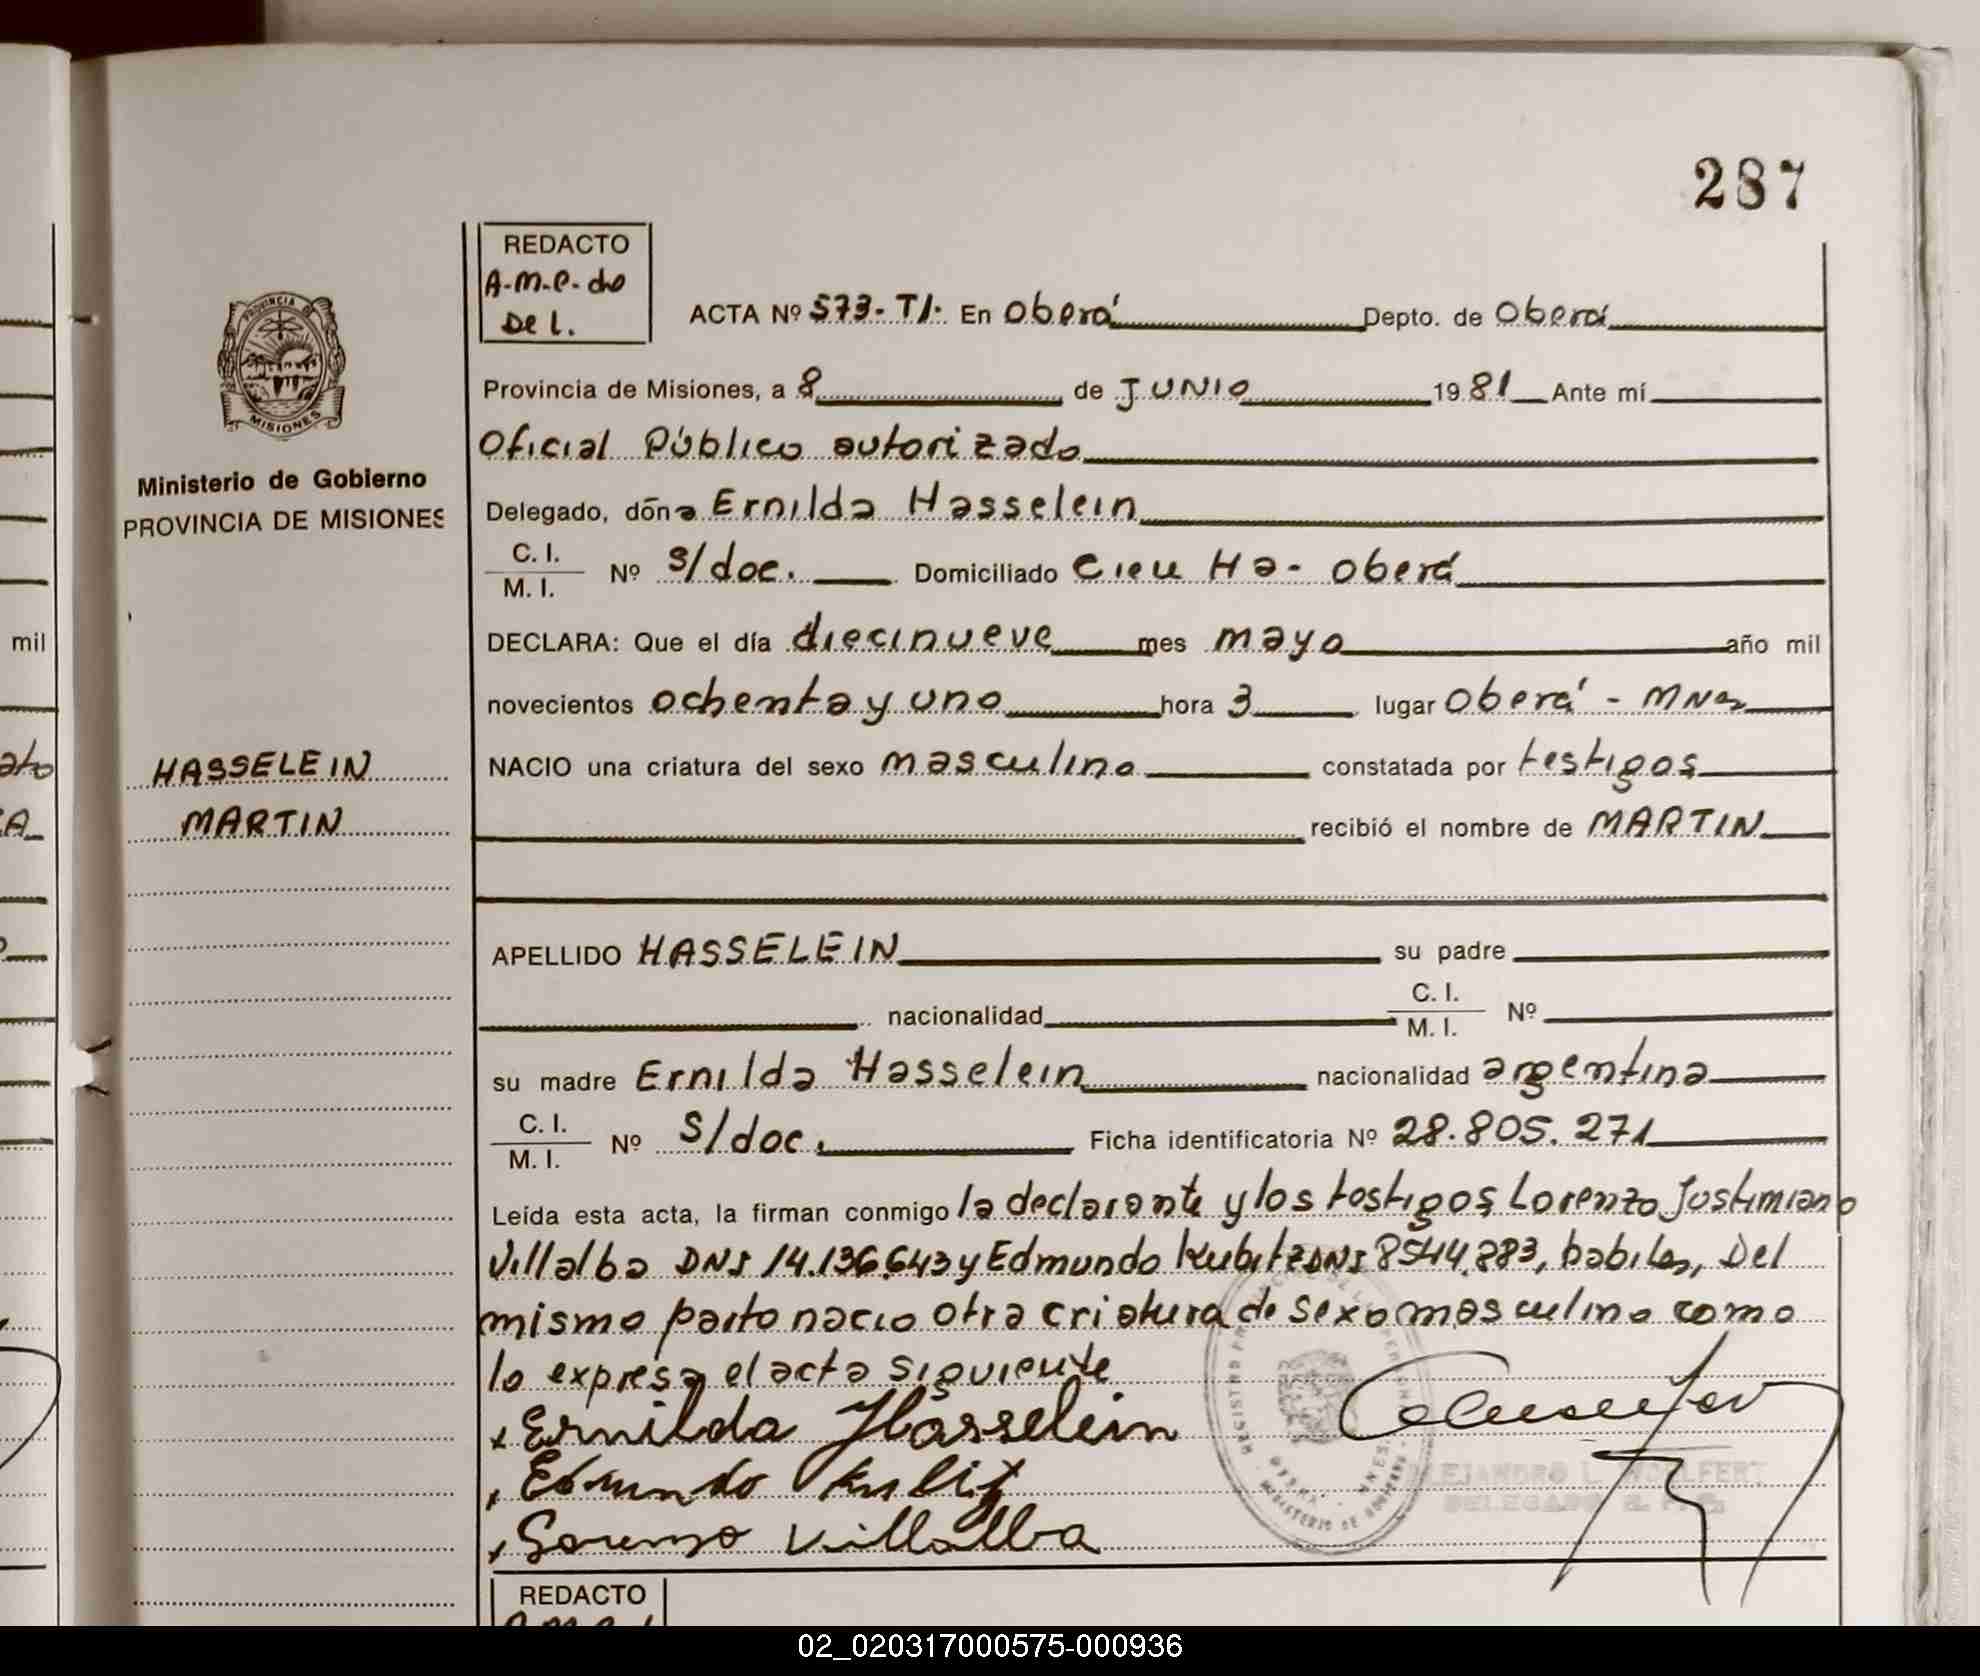 287
REDACTO
A.M.P. do
Del.
ACTA Nº 573-TI. En Oberá Depto. de Oberá
PROVINCIA
MISIONES
Provincia de Misiones, a 8 de JUNIO 1981 Ante mí
Oficial Público autorizado
Ministerio de Gobierno
PROVINCIA DE MISIONES
Delegado, dóña Ernilda Hasselein
C. I.
M. I.
Nº S/doc. Domiciliado Cieu Ha- Oberá
mil
DECLARA: Que el día diecinueve mes mayo año mil
novecientos ochenta y uno hora 3 lugar Oberá - MNes
HASSELEIN
NACIO una criatura del sexo masculino constatada por testigos
MARTIN
recibió el nombre de MARTIN
APELLIDO HASSELEIN su padre
nacionalidad C. I.
M. I. Nº
su madre Ernilda Hasselein nacionalidad argentina
C. I.
M. I.
Nº S/doc. Ficha identificatoria Nº 28.805.271
Leída esta acta, la firman conmigo la declarante y los testigos Lorenzo Justimiano
Villalba DNI 14.136.643 y Edmundo Kubitz DNI 8544.283, habiles, Del
mismo parto nacio otra criatura de sexo masculino como
lo expresa el acta siguiente
x Ernilda Hasselein
x Edmundo Kubitz
x Lorenzo Villalba
ALEJANDRO L. WOLFERT
DELEGADO R. P. C.
REDACTO
02_020317000575-000936